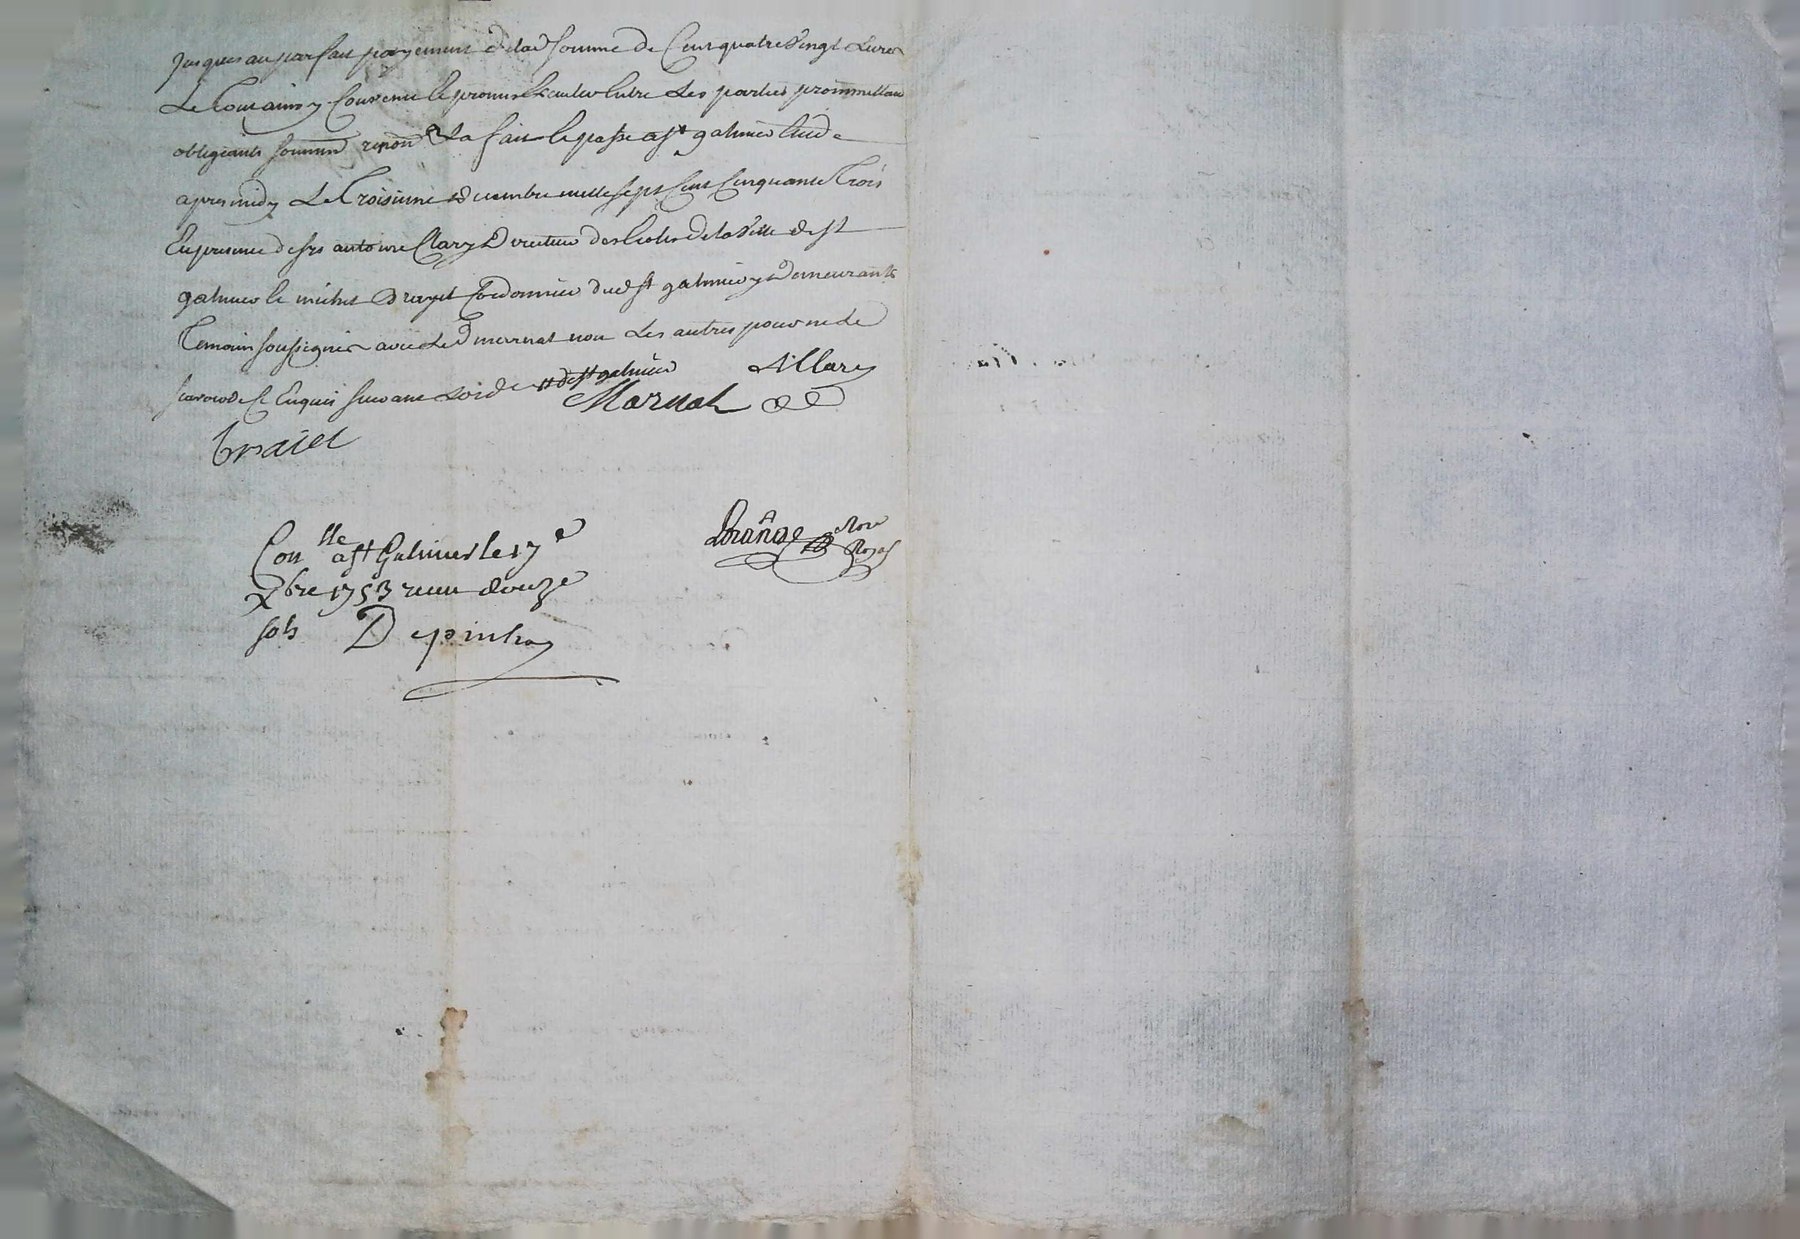 jusques au parfait payement de lad somme de Cent quatre Vingt Livres
Le tout ainsy Convenu le promis Executer Entre Les parties promettant
obligeants soumm renon &a fait le passe a st galmier Etude
apres midy Le Troisieme decembre mille sept Cent Cinquante Trois
En presence de srs antoine Clary Directeur des Ecoles de la Ville de st
galmier le michel Cordonnier dud st galmier y Demeurants
Temoins soussignes avec led mernat non Les autres pour ne le
scavoir de ce Enquis suivant
A Clary
Marnat
Contlle a st Galmier le 17e
Xbre 1753 reçu douze
sols Depinhac
Nore
Royal